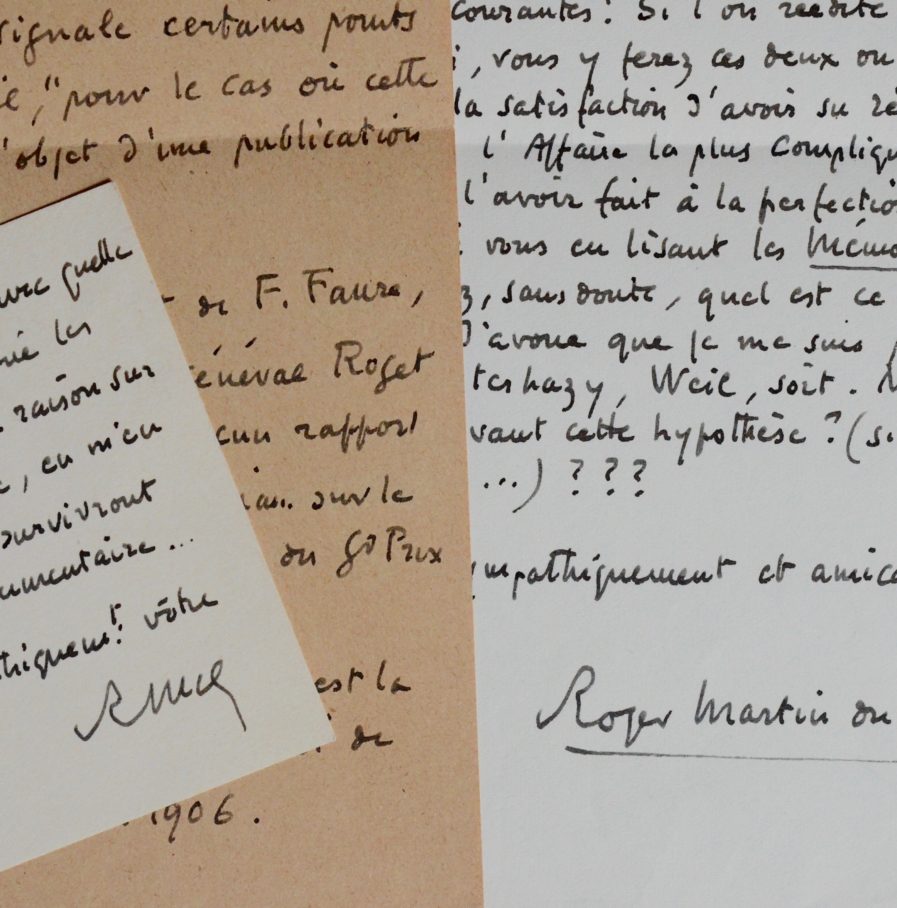 signale certains points
ié," pour le cas où cette
l'objet d'une publication
de F. Faure,
énéral Roget
cun rapport
sur le
du Gd Prix
est la
de
1906.
avec quelle
les
raison sur
, en m'en
survivront
umentaire...
thiquemt. vôtre
RMG
courantes! Si l'on réédite
, vous y ferez ces deux ou
la satisfaction d'avoir su ré
l'Affaire la plus compliqu
l'avoir fait à la perfectio
vous en lisant les Mémo
z, sans doute, quel est ce
J'avoue que je me suis
terhazy, Weil, soit.
vant cette hypothèse? (si
...) ???
ympathiquement et amica
Roger Martin du